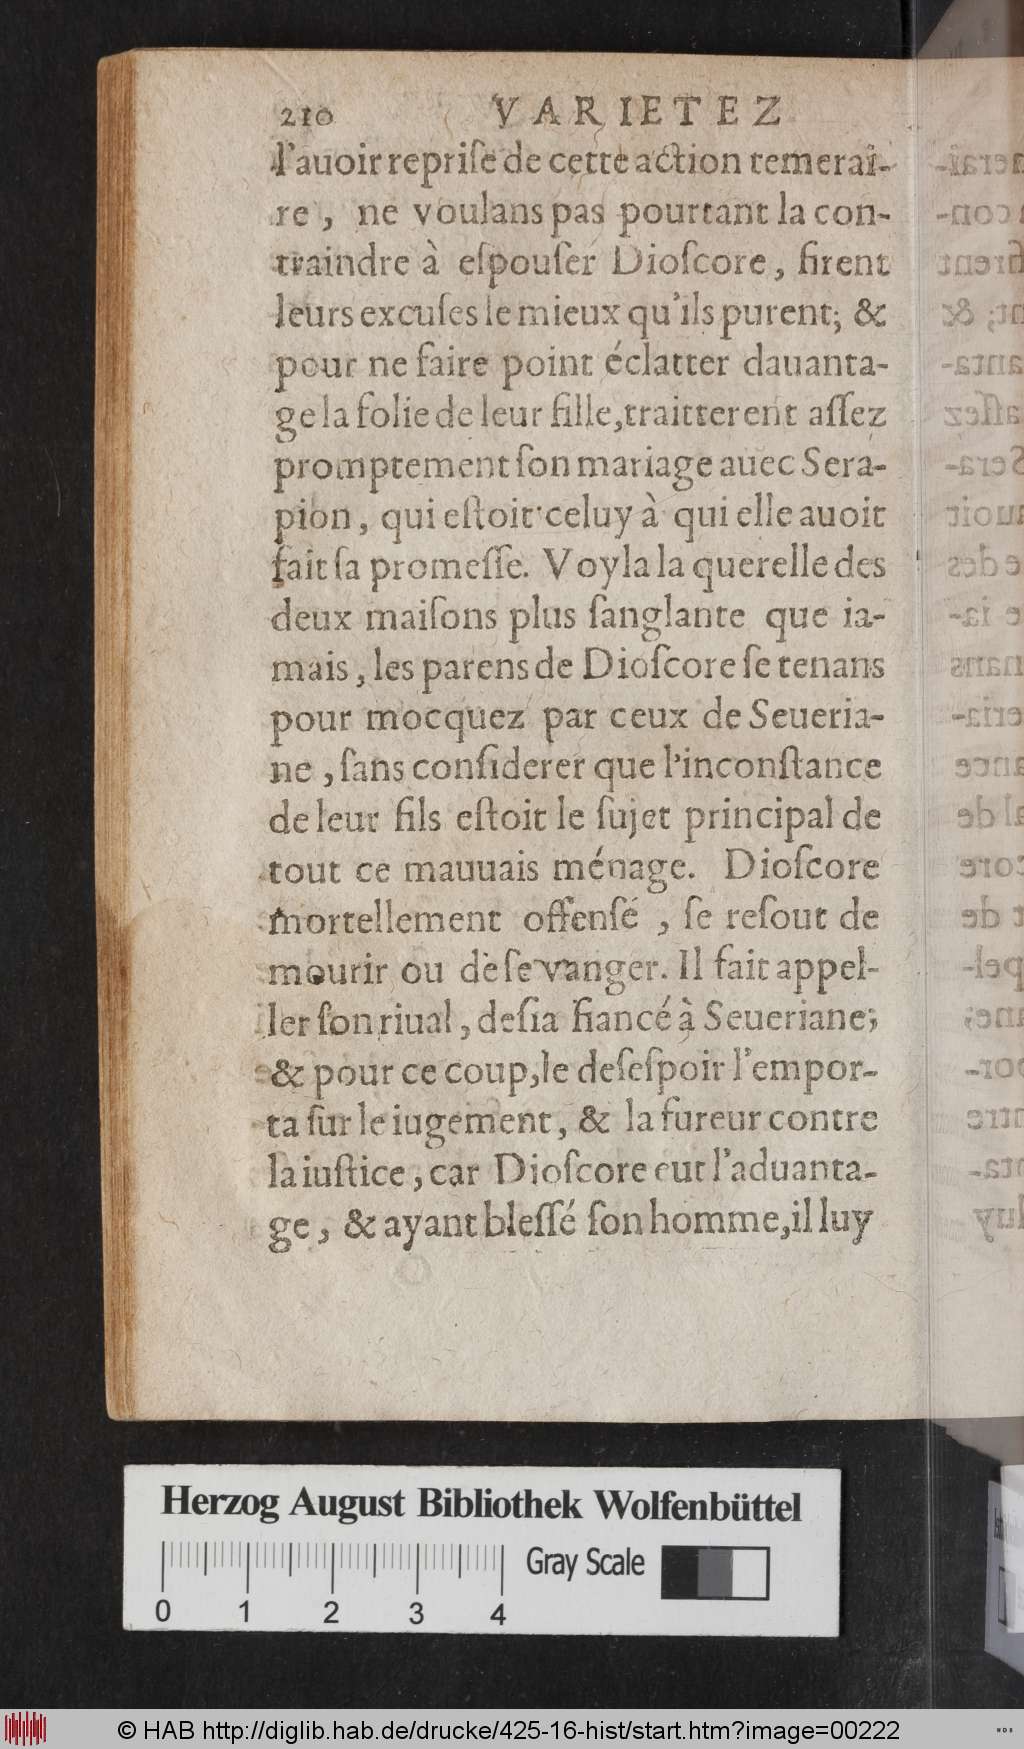 210 VARIETEZ
l'auoir reprise de cette action temerai-
re, ne voulans pas pourtant la con-
traindre à eſpouſer Dioſcore, firent
leurs excuſes le mieux qu'ils purent; &
pour ne faire point éclatter dauanta-
ge la folie de leur fille, traitterent aſſez
promptement ſon mariage auec Sera-
pion, qui eſtoit celuy à qui elle auoit
fait ſa promeſſe. Voyla la querelle des
deux maiſons plus ſanglante que ia-
mais, les parens de Dioſcore ſe tenans
pour mocquez par ceux de Seueria-
ne, ſans conſiderer que l'inconſtance
de leur fils eſtoit le ſujet principal de
tout ce mauuais ménage. Dioſcore
mortellement offenſé, ſe reſout de
mourir ou de ſe vanger. Il fait appel-
ler ſon riual, deſia fiancé à Seueriane;
& pour ce coup, le deſeſpoir l'empor-
ta ſur le iugement, & la fureur contre
la iuſtice, car Dioſcore eut l'aduanta-
ge, & ayant bleſſé ſon homme, il luy
Herzog August Bibliothek Wolfenbüttel
Gray Scale
0 1 2 3 4
© HAB http://diglib.hab.de/drucke/425-16-hist/start.htm?image=00222